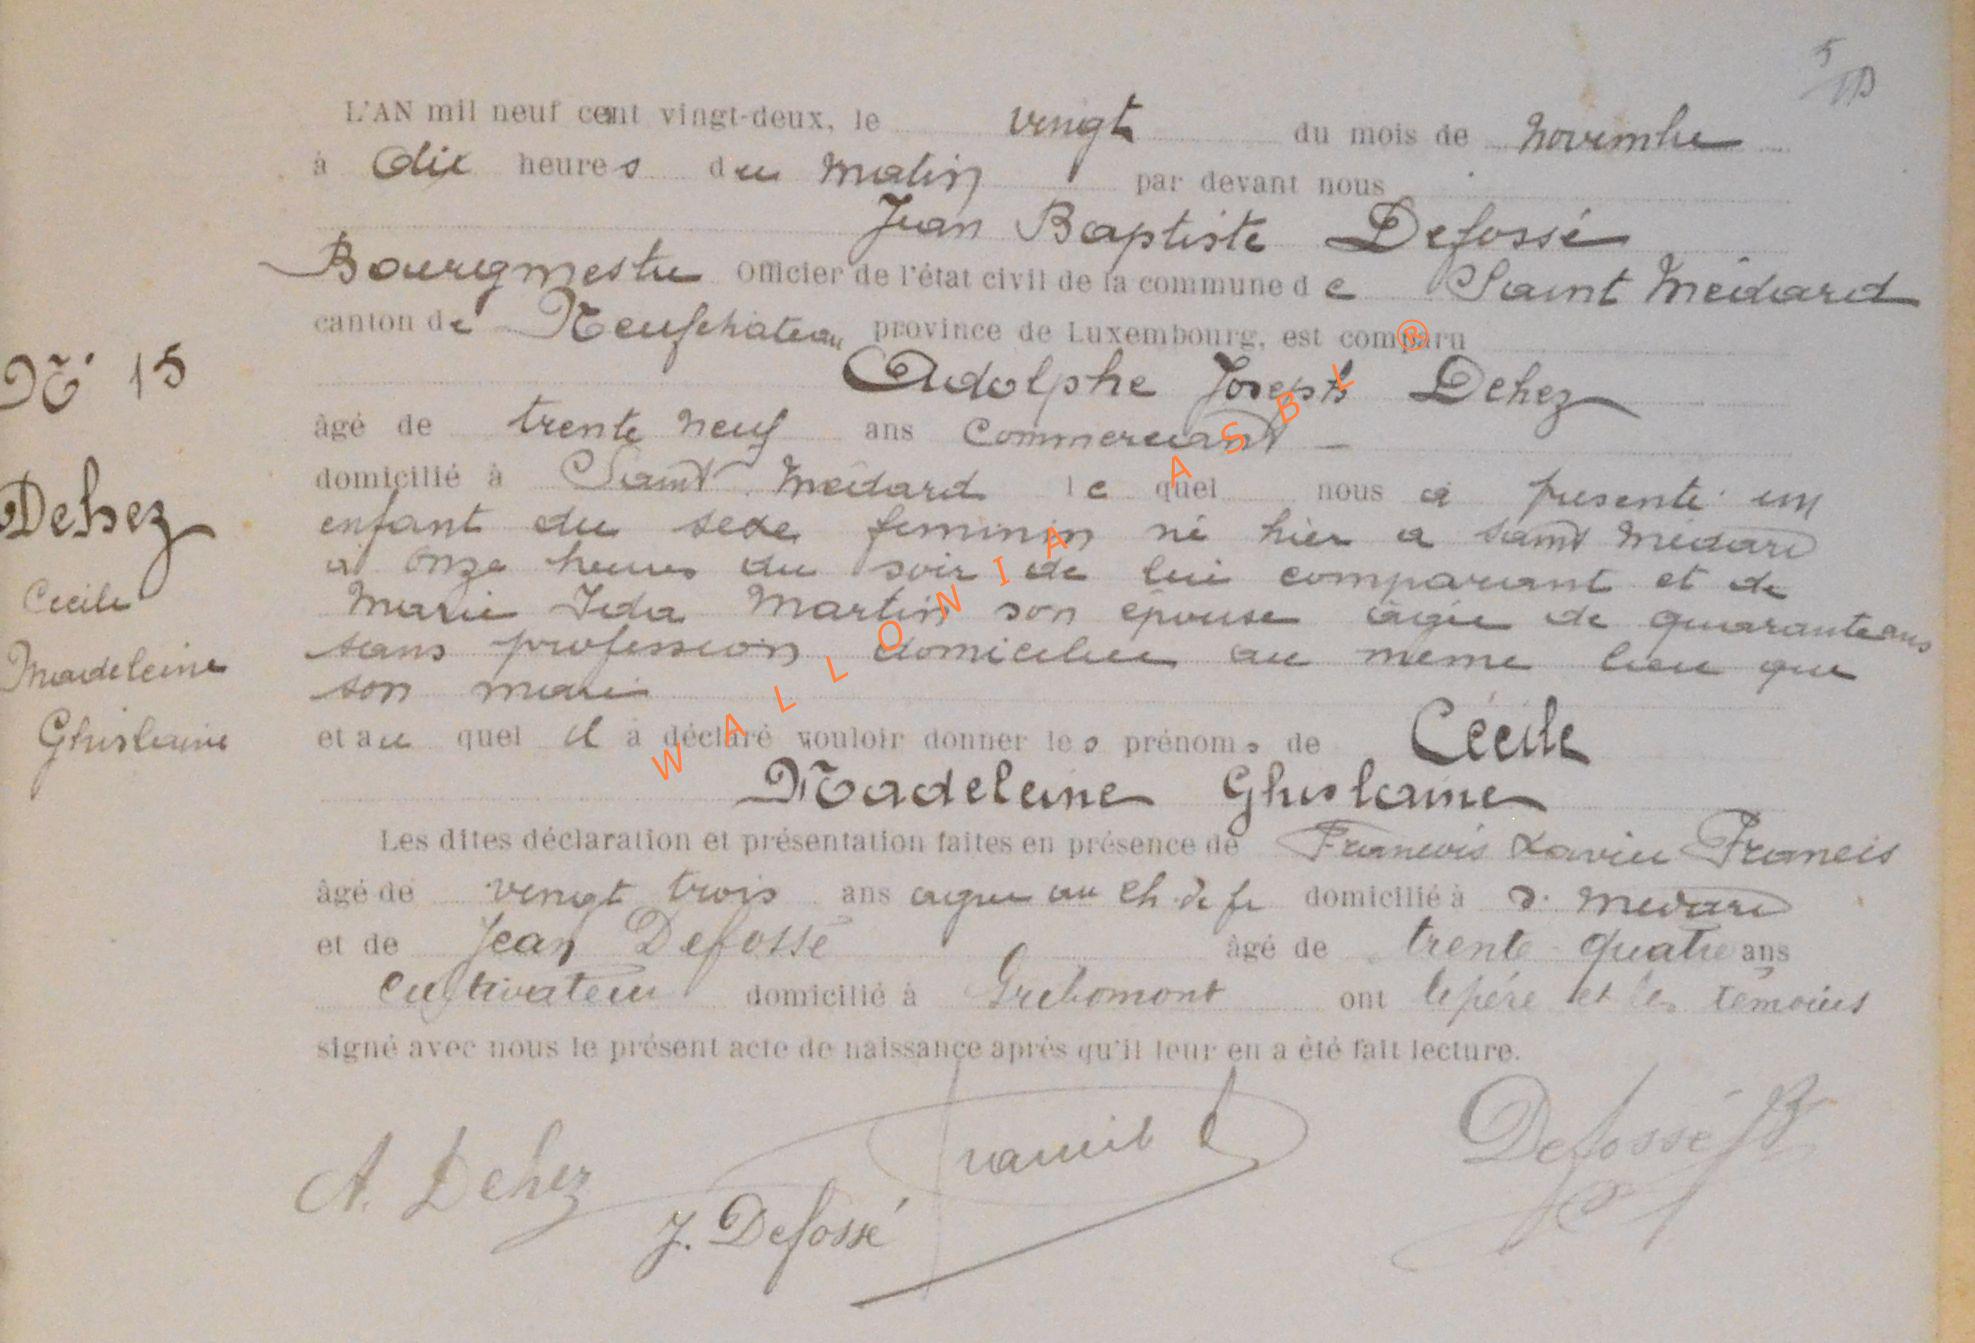 5
L'AN mil neuf cent vingt-deux, le vingt du mois de novembre
à dix heures du matin par devant nous
Jean Baptiste Defossé
Bourgmestre Officier de l'état civil de la commune de Saint Médard
canton de Neufchateau province de Luxembourg, est comparu
N° 15
Adolphe Joseph Dehez
âgé de trente neuf ans commercant
domicilié à Saint Médard le quel nous a presenté un
Dehez
enfant du sexe feminin né hier a saint Médard
à onze heures du soir de lui comparant et de
Cecile
Marie Ida Martin son épouse âgée de quarante ans
sans profession domiciliée au meme lieu que
Madeleine
son mari
Ghislaine
et au quel il a déclaré vouloir donner les prénoms de Cécile
Madeleine Ghislaine
Les dites déclaration et présentation faites en présence de Francois Xavier Francis
âgé de vingt trois ans au ch. de fe domicilié à S. Médard
et de Jean Defossé âgé de trente quatre ans
cultivateur domicilié à Grebomont ont le père et les témoins
signé avec nous le présent acte de naissance après qu'il leur en a été fait lecture.
A. Dehez
Francis
J. Defossé
Defossé JB
WALLONIA ASBL ®